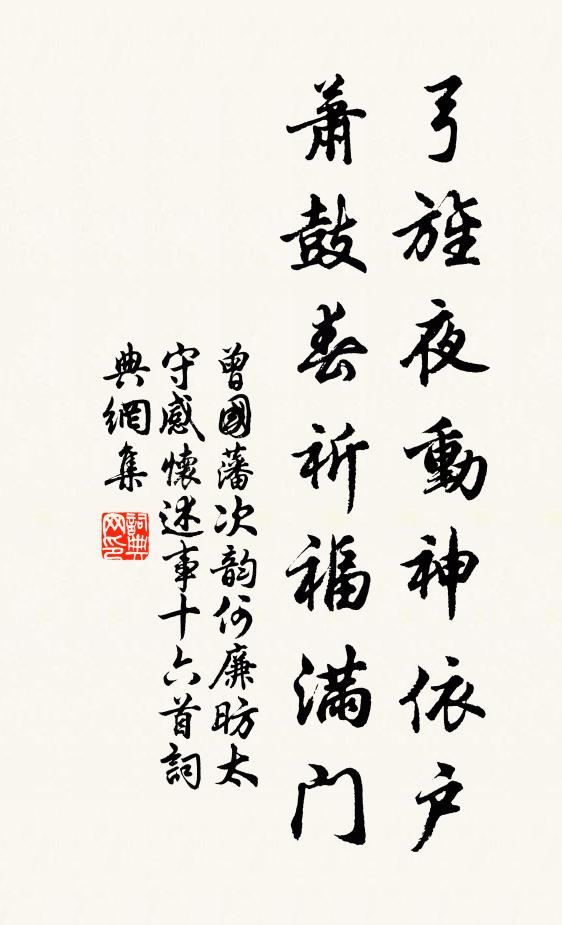 弓旌夜動神依户
蕭鼓春祈福滿門
曾國藩次韵何廉昉太
守感懷述事十六首詞
典網集
詞典网印